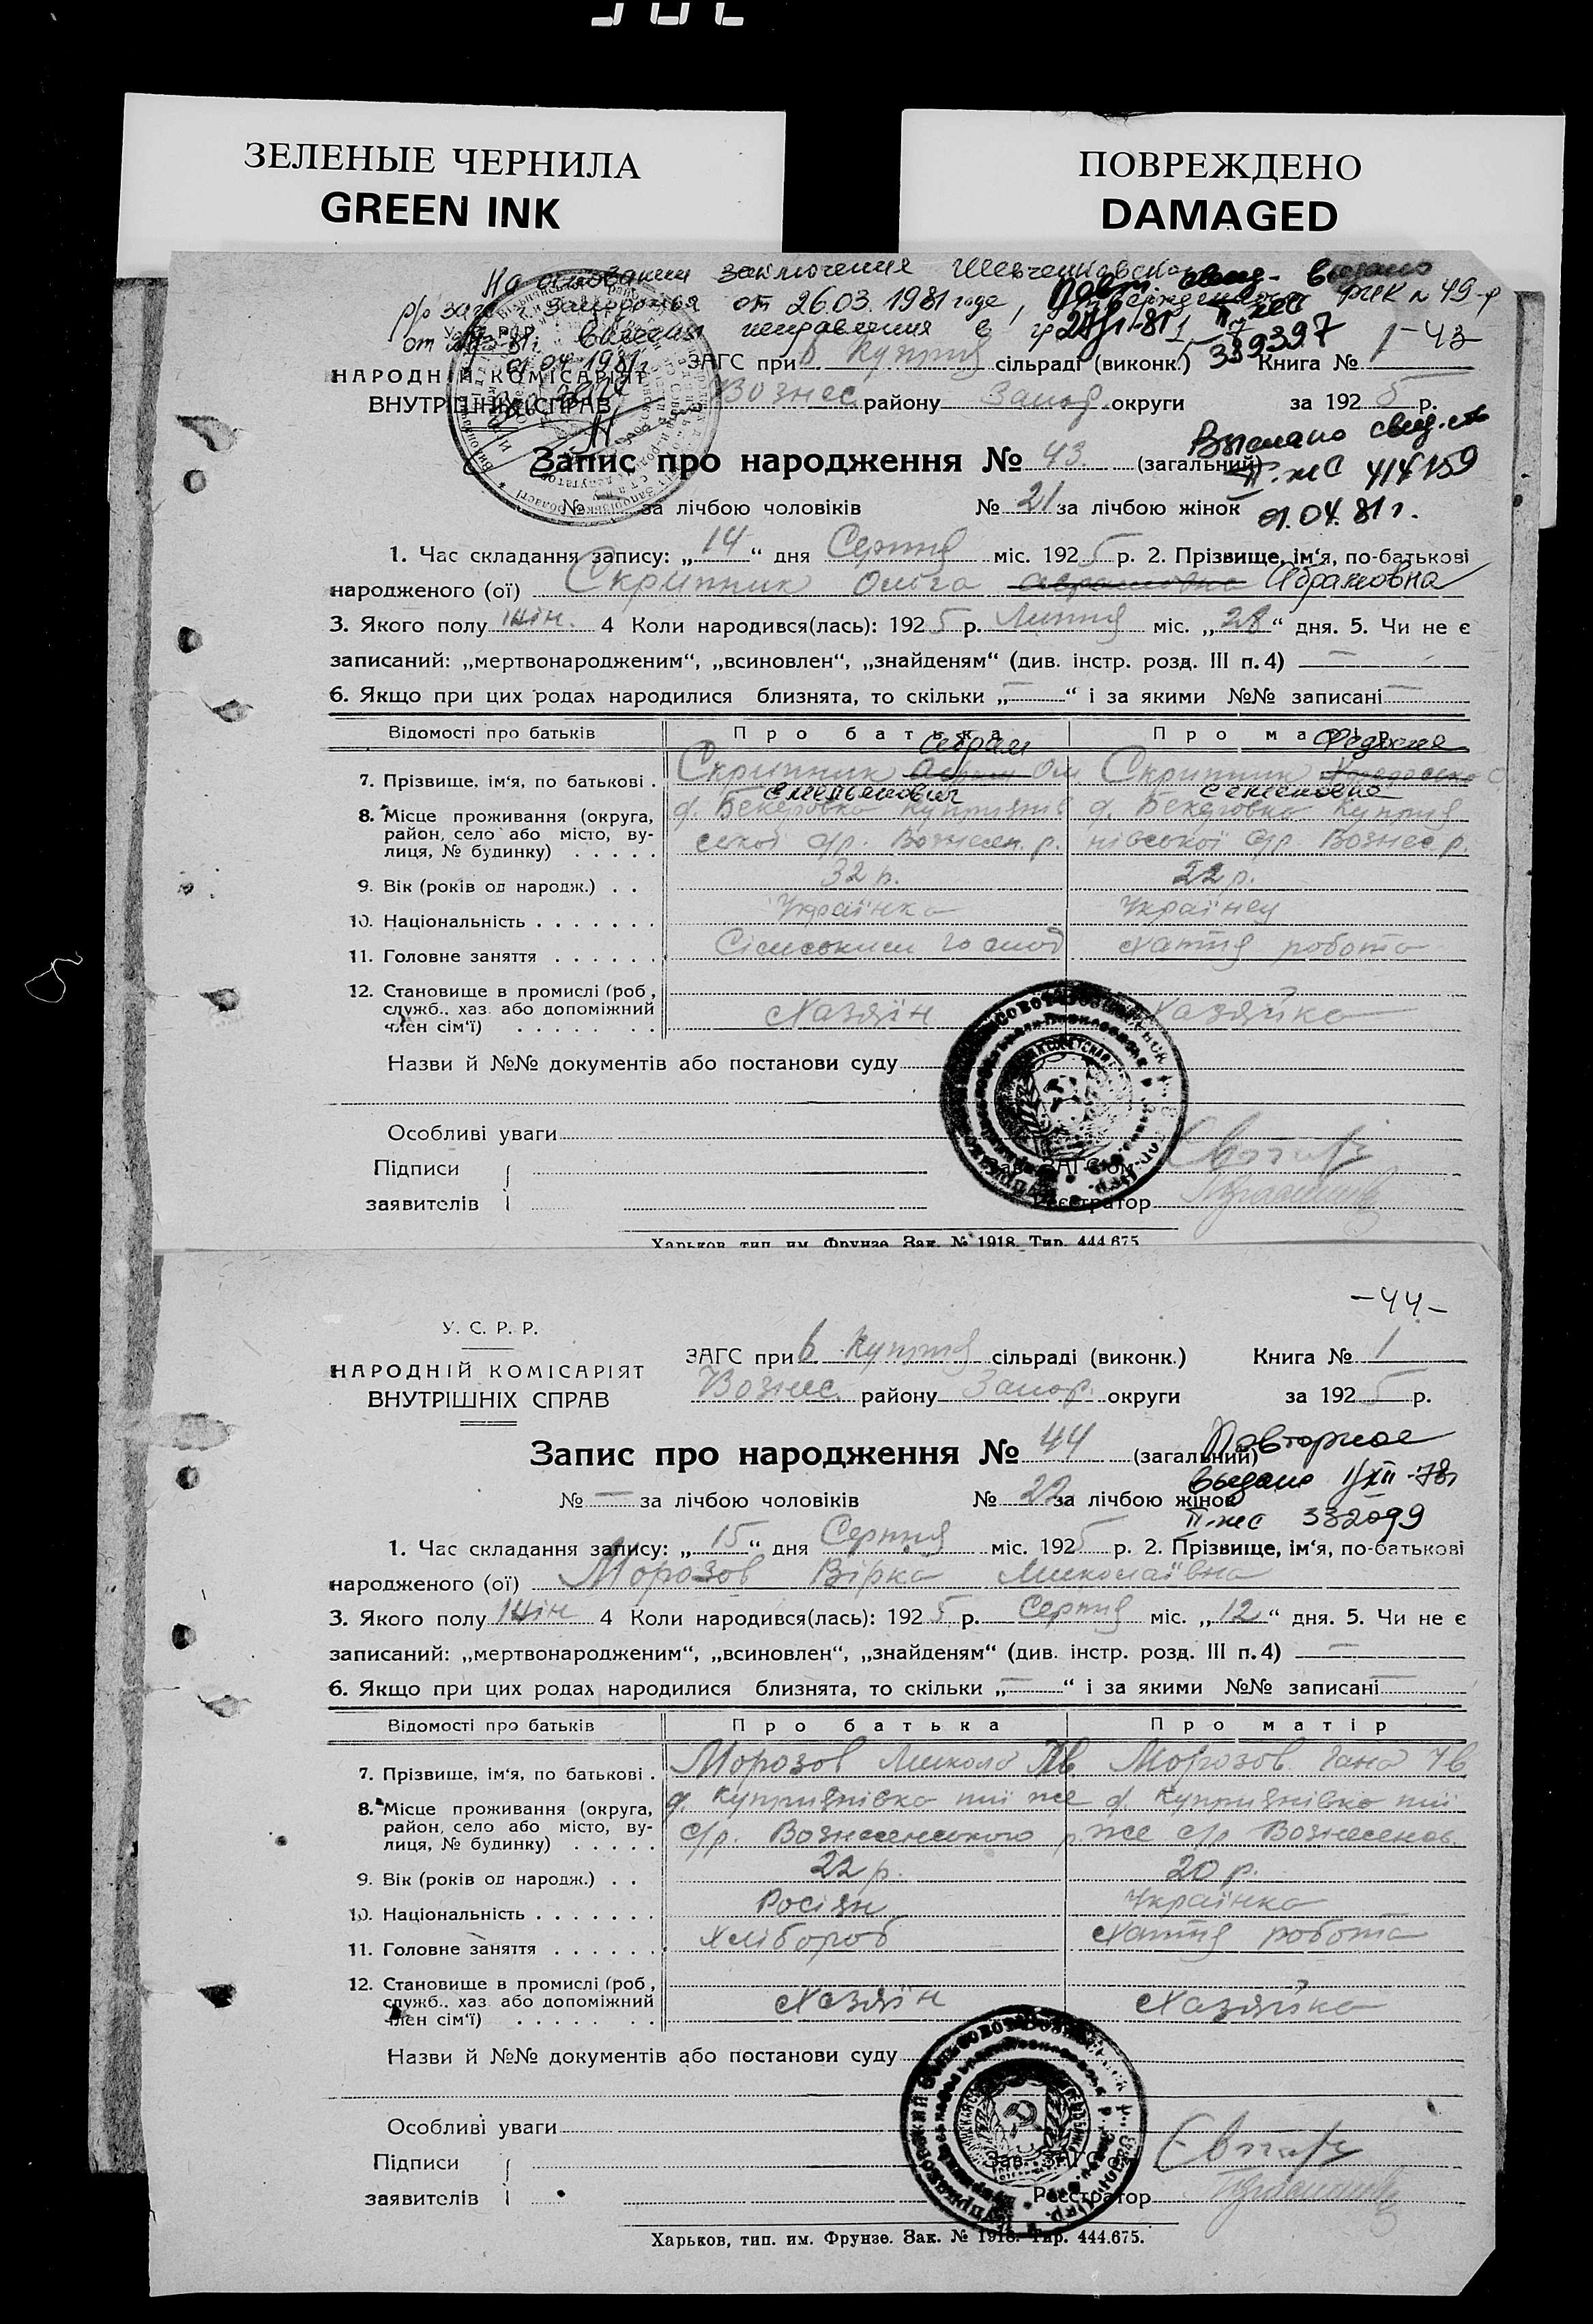 ЗЕЛЕНЫЕ ЧЕРНИЛА
GREEN INK
ПОВРЕЖДЕНО
DAMAGED
На основании заключения Шевченковского
р/о загс г. Запорожья от 26.03.1981 года,
внесены исправления в
01.04.1981г.
339397
1-43
НАРОДНІЙ КОМІСАРІЯТ
ВНУТРІШНІХ СПРАВ
ЗАГС при в Куприя сільраді (виконк.) Книга №
Вознес району Запор. округи за 1925 р.
Выслано свид-во
II-ЖС 414159
01.04.81 г.
Запис про народження № 43. (загальний)
№ — за лічбою чоловіків № 21 за лічбою жінок
1. Час складання запису: „14“ дня Серпня міс. 1925 р. 2. Прізвище, ім‘я, по-батькові
народженого (ої) Скрипник Ольга Абрамовна
3. Якого полу жін. 4 Коли народився(лась): 1925 р. Липня міс. „28“ дня. 5. Чи не є
записаний: „мертвонародженим“, „всиновлен“, „знайденям“ (див. інстр. розд. III п. 4) —
6. Якщо при цих родах народилися близнята, то скільки „—“ і за якими №№ записані —
Відомості про батьків Про батька Про матір
7. Прізвище, ім‘я, по батькові . Скрипник Абрам Омельянович Скрипник Федосия Семеновна
8. Місце проживання (округа, район, село або місто, вулиця, № будинку) . . . . .
9. Вік (років од народж.) . . 32 р. 22 р.
10. Національність . . . . . . . Українка Українец
11. Головне заняття . . . . . . Хатня робота
12. Становище в промислі (роб,
служб.. хаз. або допоміжний
член сім‘ї) . . . . . . . . Хазяїн Хазяйка
Назви й №№ документів або постанови суду
Особливі уваги
Підписи
заявителів
Зав. ЗАГС‘ом
Реєстратор
Харьков, тип. им. Фрунзе. Зак. № 1918. Тир. 444.675
-44-
У. С. Р. Р.
НАРОДНІЙ КОМІСАРІЯТ
ВНУТРІШНІХ СПРАВ
ЗАГС при в Куприя сільраді (виконк.) Книга № 1
Вознес. району Запор. округи за 1925 р.
Запис про народження № 44 (загальний)
Повторное
выдано 1/XII-78г
II-ЖС 332099
№ — за лічбою чоловіків № 22 за лічбою жінок
1. Час складання запису: „15“ дня Серпня міс. 1925 р. 2. Прізвище, ім‘я, по-батькові
народженого (ої) Морозов Вірка Миколаївна
3. Якого полу Жін 4 Коли народився(лась): 1925 р. Серпня міс. „12“ дня. 5. Чи не є
записаний: „мертвонародженим“, „всиновлен“, „знайденям“ (див. інстр. розд. III п. 4) —
6. Якщо при цих родах народилися близнята, то скільки „—“ і за якими №№ записані —
Відомості про батьків Про батька Про матір
7. Прізвище, ім‘я, по батькові . Морозов Микола Ів Морозов Гана Ів
8. Місце проживання (округа, д. Куприянівка тиї же д. Куприянівка тиї
район, село або місто, ву- с/р. Вознесенського р. же с/р Вознесенсь.
лиця, № будинку) . . . . .
9. Вік (років од народж.) . . 22 р. 20 р.
10. Національність . . . . . . . Росіян Українка
11. Головне заняття . . . . . . Хлібороб Хатня робота
12. Становище в промислі (роб,
служб.. хаз. або допоміжний
член сім‘ї) . . . . . . . . Хазяїн Хазяйка
Назви й №№ документів або постанови суду
Особливі уваги
Підписи
заявителів
Зав. ЗАГС‘ом
Реєстратор
Харьков, тип. им. Фрунзе. Зак. № 1918. Тир. 444.675.